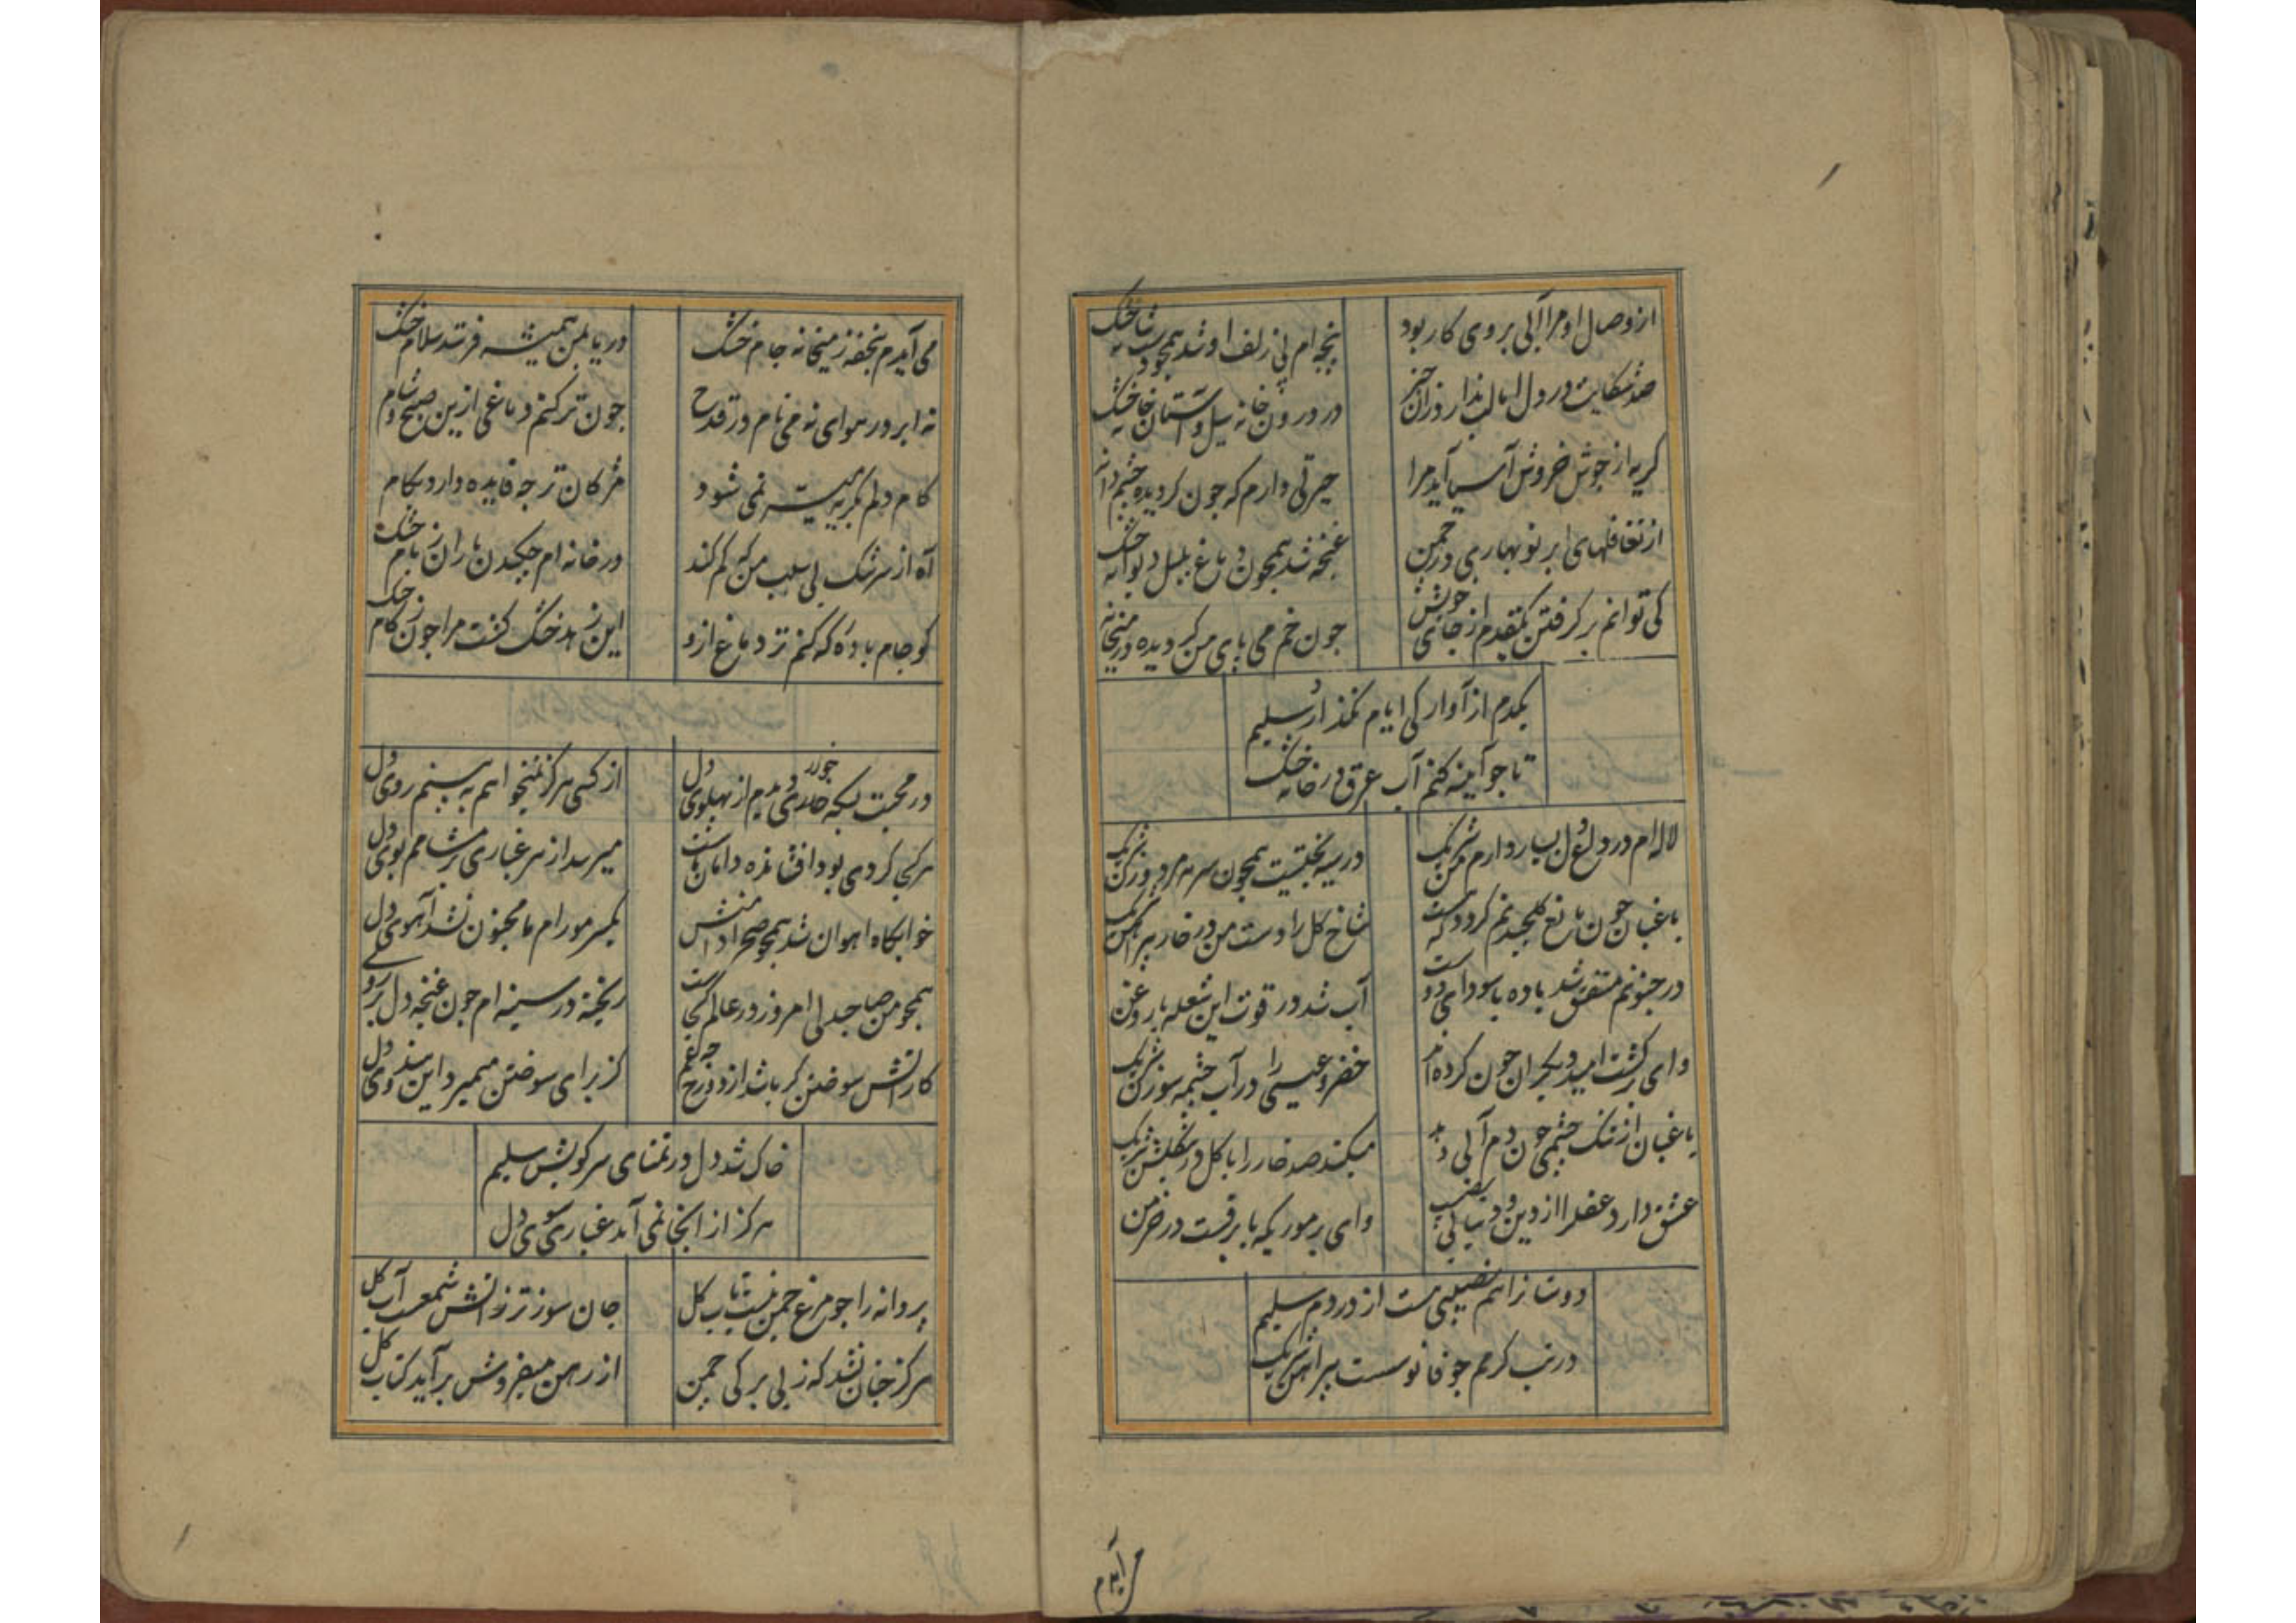 از وصال او مرا آبی بروی کار بود
پنجه ام بی زلف او شد همچو شانه خشک
صد شکایت در دل اما لب ندارد زان خبر
در درون خانه سیل و آستان خانه خشک
کریه از جوش خروش آسیا آید مرا
حیرتی دارم که چون کردیده چشم دانه
از تغافلهای ابر نوبهاری در چمن
غنچه شد همچون دماغ بلبل دیوانه خشک
کی توانم بر کرفتن یکقدم از جای خویش
چون خم می پای من کردیده در میخانه
یکدم از آوارکی ایام نکذارد سلیم
تا چو آیینه کنم آب عرق در خانه خشک
لاله ام در داغ دل بسیار دارم من شریک
در سیه بختیست همچون سرمه مرد و زن شریک
باغبان چون مانع کلچیدنم کردد که هست
شاخ کل را دست من در خار پیراهن شریک
در جنونم متفق شد باده با سودای دوست
آب شد در قوت این شعله با روغن
وای بر کشت امید دیکران چون کرده اند
خضر و عیسی را در آب چشمه سوزن شریک
باغبان از تنک چشمی چون دم آبی دهد
میکند صد خار را با کل در کلشن شریک
عشق دارد عقل را از دین و دنیا بی نصیب
وای بر موریکه با برقست در خرمن
دوستان را هم نصیبی هست از دردم سلیم
در تب کرمم چو فانوسست پیراهن شریک
می آیدم
می آیدم بتحفه ز میخانه جام خشک
دریا بمن همیشه فرستد سلام خشک
نه ابر در هوای نه می نام در قدح
چون تر کنم دماغی ازین صبح و شام
کام دلم بکریه میسر نمی شود
مژکان تر چه فایده دارد بکام
آه از سرشک بی سبب من که کم کند
در خانه ام چکیدن باران ز بام خشک
کو جام باده که کنم تر دماغ ازو
این زهد خشک کشت مرا چون زکام خشک
در محبت بسکه خواری دیدم از پهلوی دل
از کسی هرکز نمیخواهم به بینم روی دل
هر کجا کردی بود افشانده دامان ماست
میرسد از هر غباری بر مشامم بوی دل
خوابکاه اهوان شد همچو صحرا دامنش
یکسر مو رام ما مجنون نشد آهوی دل
همچو من صاحبدلی امروز در عالم کجاست
ریخته در سینه ام چون غنچه دل بر روی دل
کار آتش سوختن کر باشد از دوزخ چه غم
کز برای سوختن میمیرد این هندوی دل
خاک شد دل در تمنای سر کویش سلیم
هرکز از انجا نمی آید غباری سوی دل
پروانه را چو مرغ چمن نیست تاب کل
جان سوزتر ز آتش شمعست آب کل
هرکز چنان نشد که ز بی برکی چمن
از رهن میفروش برآید کتاب کل